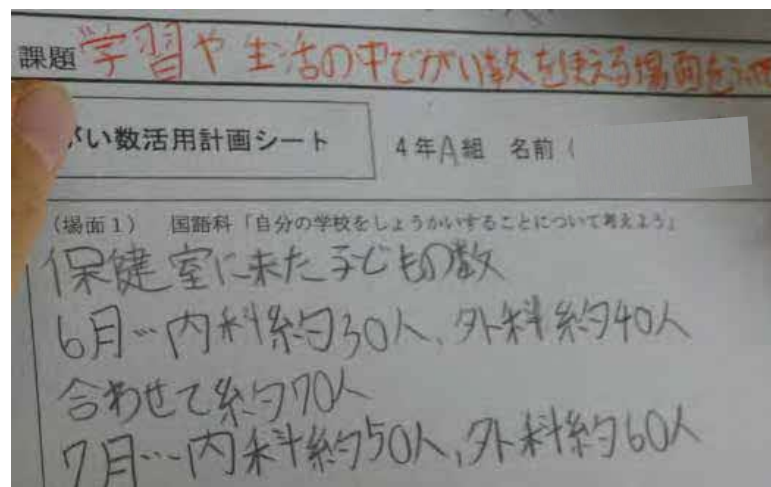 課題 学習や生活の中でがい数を使える場面を
がい数活用計画シート
4年A組 名前（
（場面1） 国語科「自分の学校をしょうかいすることについて考えよう」
保健室に来た子どもの数
6月…内科約30人、外科約40人
合わせて約70人
7月…内科約50人、外科約60人